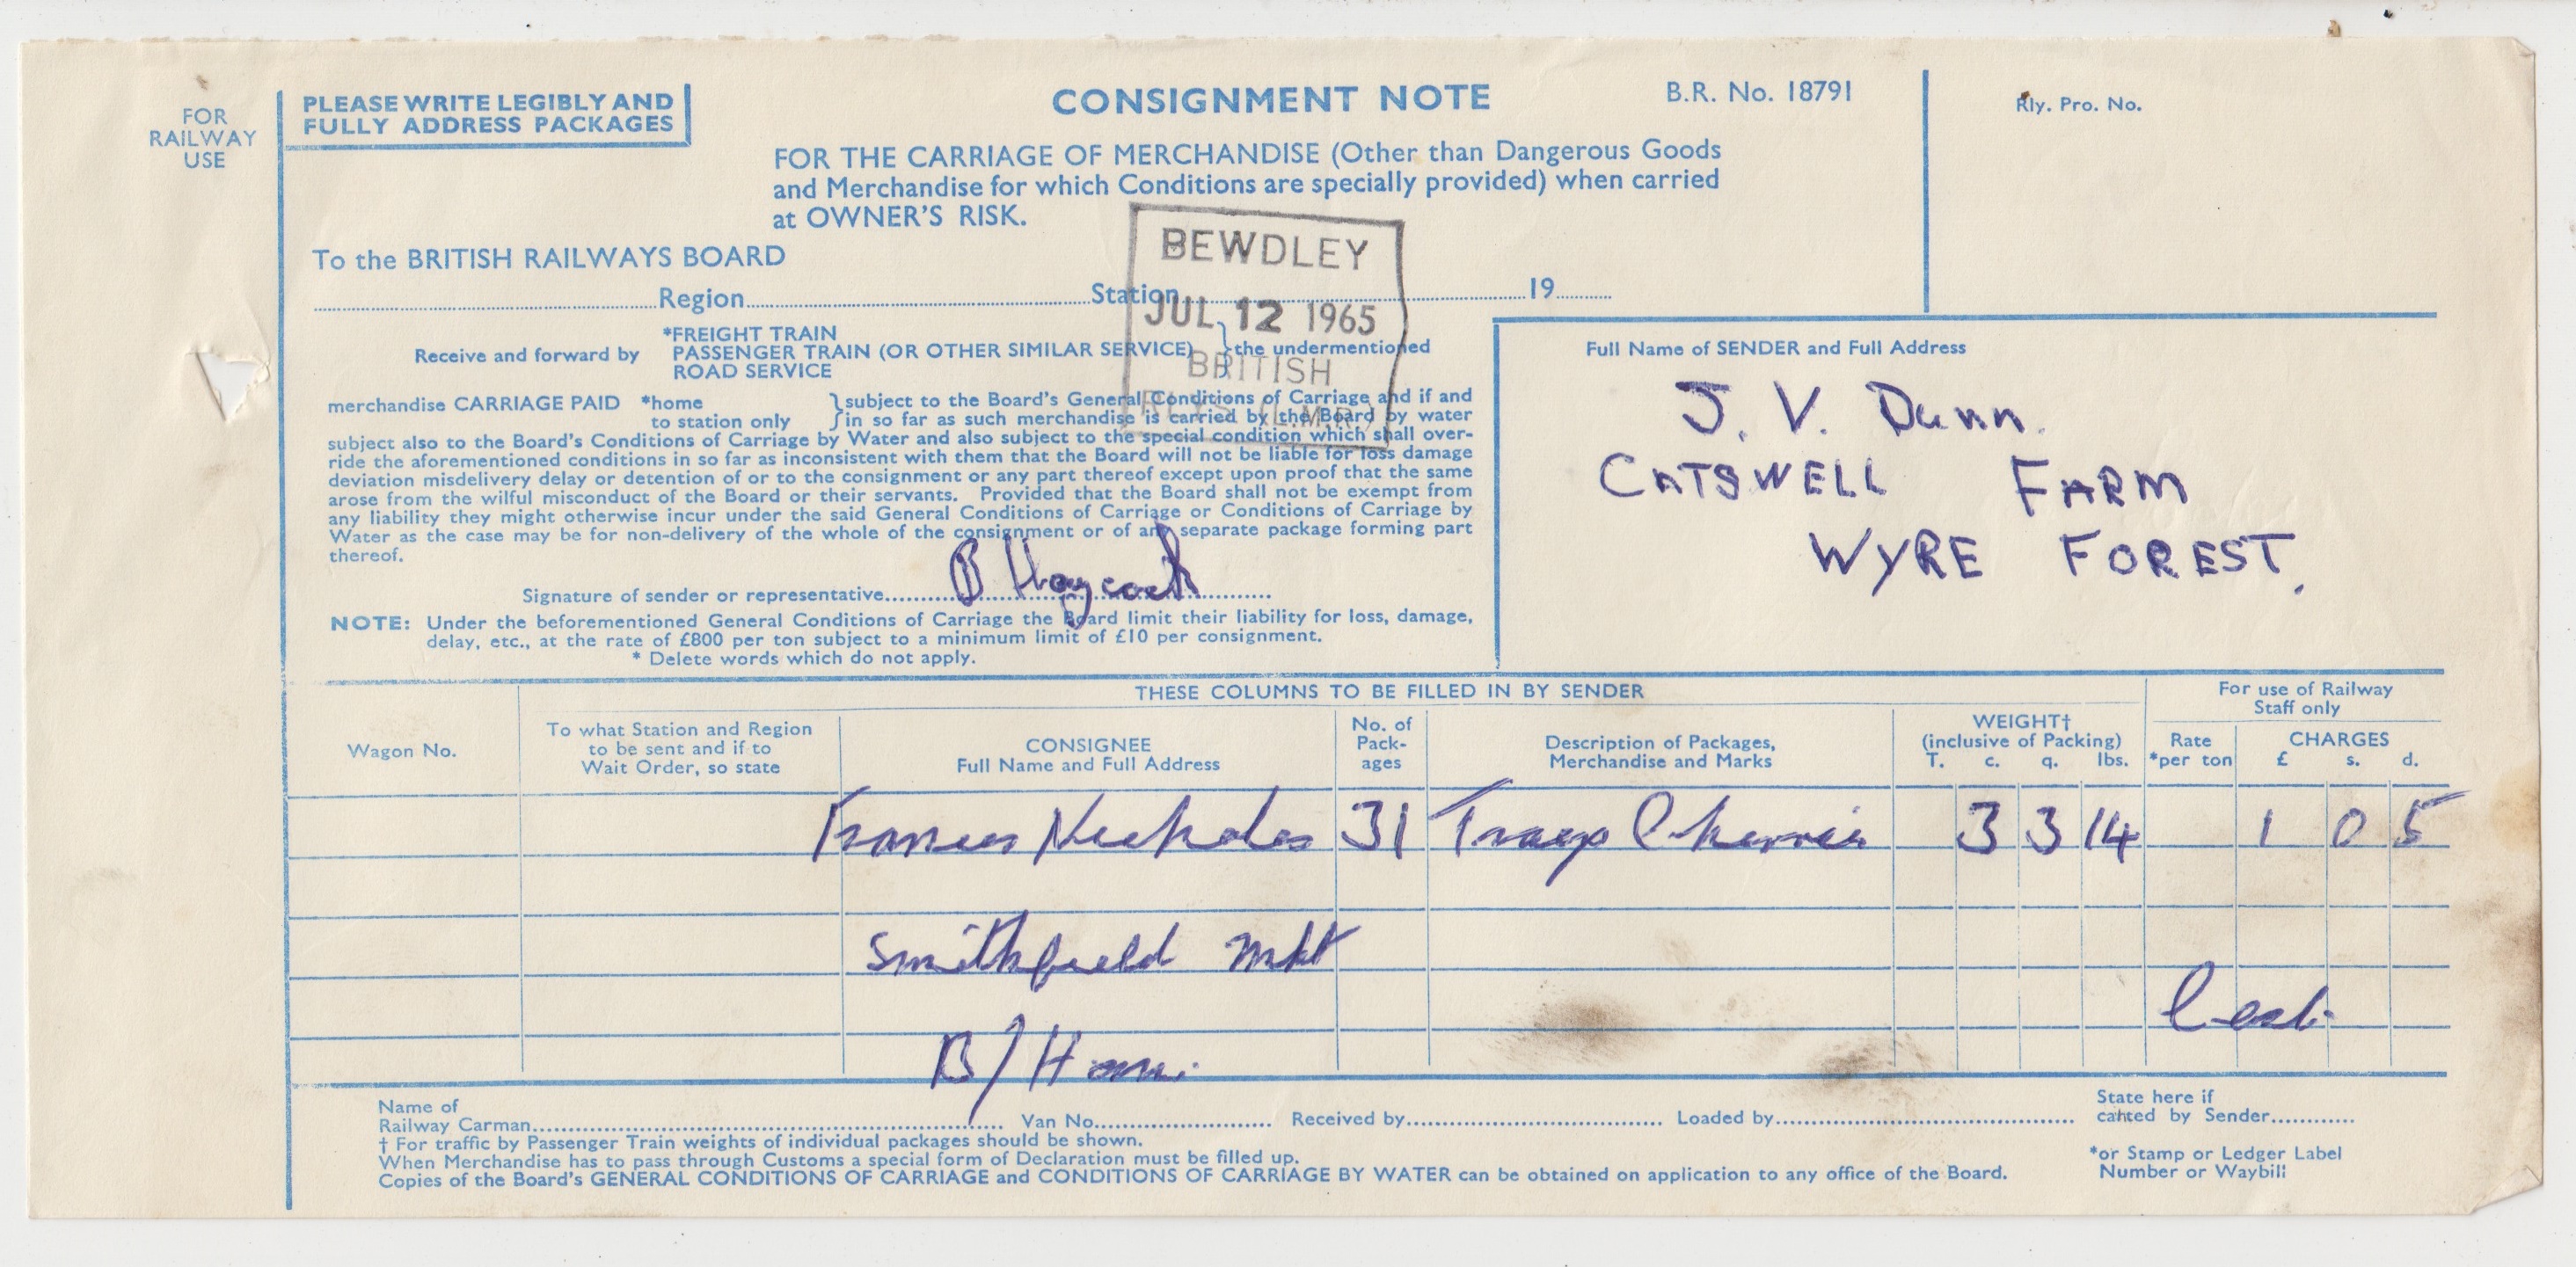 FOR
RAILWAY
USE
PLEASE WRITE LEGIBLY AND
FULLY ADDRESS PACKAGES
CONSIGNMENT NOTE
B.R. No. 18791
Rly. Pro. No.
FOR THE CARRIAGE OF MERCHANDISE (Other than Dangerous Goods
and Merchandise for which Conditions are specially provided) when carried
at OWNER'S RISK.
To the BRITISH RAILWAYS BOARD
Region Station 19
BEWDLEY
JUL 12 1965
BRITISH
RLYS (L.M.R)
*FREIGHT TRAIN
Receive and forward by PASSENGER TRAIN (OR OTHER SIMILAR SERVICE) } the undermentioned
ROAD SERVICE
merchandise CARRIAGE PAID *home } subject to the Board's General Conditions of Carriage and if and
to station only } in so far as such merchandise is carried by the Board by water
subject also to the Board's Conditions of Carriage by Water and also subject to the special condition which shall over-
ride the aforementioned conditions in so far as inconsistent with them that the Board will not be liable for loss damage
deviation misdelivery delay or detention of or to the consignment or any part thereof except upon proof that the same
arose from the wilful misconduct of the Board or their servants. Provided that the Board shall not be exempt from
any liability they might otherwise incur under the said General Conditions of Carriage or Conditions of Carriage by
Water as the case may be for non-delivery of the whole of the consignment or of any separate package forming part
thereof.
Signature of sender or representative B Haycock
NOTE: Under the beforementioned General Conditions of Carriage the Board limit their liability for loss, damage,
delay, etc., at the rate of £800 per ton subject to a minimum limit of £10 per consignment.
* Delete words which do not apply.
Full Name of SENDER and Full Address
J. V. Dunn.
CATSWELL FARM
WYRE FOREST.
THESE COLUMNS TO BE FILLED IN BY SENDER
For use of Railway
Staff only
Wagon No.
To what Station and Region
to be sent and if to
Wait Order, so state
CONSIGNEE
Full Name and Full Address
No. of
Pack-
ages
Description of Packages,
Merchandise and Marks
WEIGHT†
(inclusive of Packing)
T. c. q. lbs.
Rate
*per ton
CHARGES
£ s. d.
Francis Nicholas 31 Trays Cherries 3 3 14 1 0 5
Smithfield Mkt
B/Ham.
Name of
Railway Carman Van No. Received by Loaded by
State here if
carted by Sender
† For traffic by Passenger Train weights of individual packages should be shown.
When Merchandise has to pass through Customs a special form of Declaration must be filled up.
Copies of the Board's GENERAL CONDITIONS OF CARRIAGE and CONDITIONS OF CARRIAGE BY WATER can be obtained on application to any office of the Board.
*or Stamp or Ledger Label
Number or Waybill